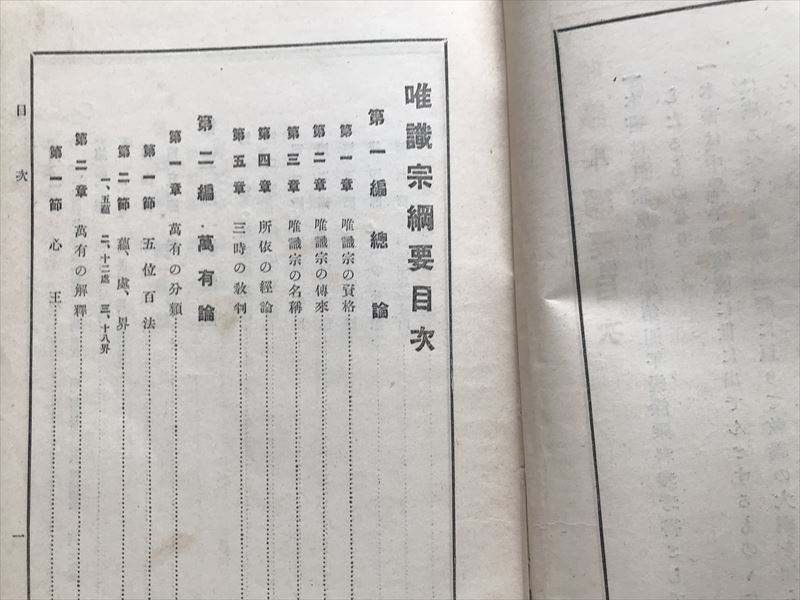 唯識宗綱要目次
第一編 總論
第一章 唯識宗の資格
第二章 唯識宗の傳來
第三章 唯識宗の名稱
第四章 所依の經論
第五章 三時の敎判
第二編 萬有論
第一章 萬有の分類
第一節 五位百法
第二節 蘊、處、界
一、五蘊 二、十二處 三、十八界
第二章 萬有の解釋
第一節 心王
目次
一